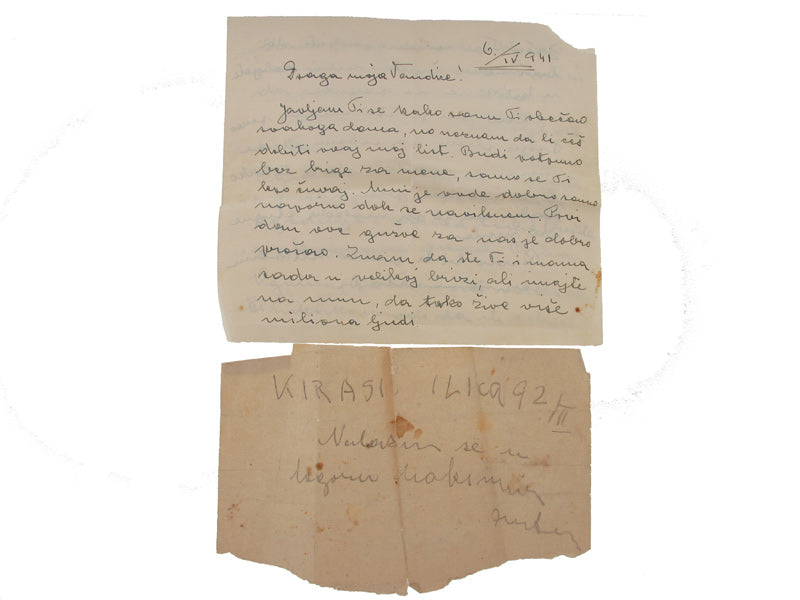 6./IV 941
Draga moja Vandice!
Javljam Ti se kako sam Ti obećao
svakoga dana, no neznam da li ćeš
dobiti ovaj moj list. Budi potpuno
bez brige za mene, samo se Ti
čuvaj. Meni je ovde dobro samo
naporno dok se naviknem. Prvi
dan ove gužve za nas je dobro
prošao. Znam da ste Ti i mama
sada u velikoj brizi, ali imajte
na umu, da tako žive više
miliona ljudi.
KIRASI ILICA 92/III
Nalazim se u
logoru Maksimir